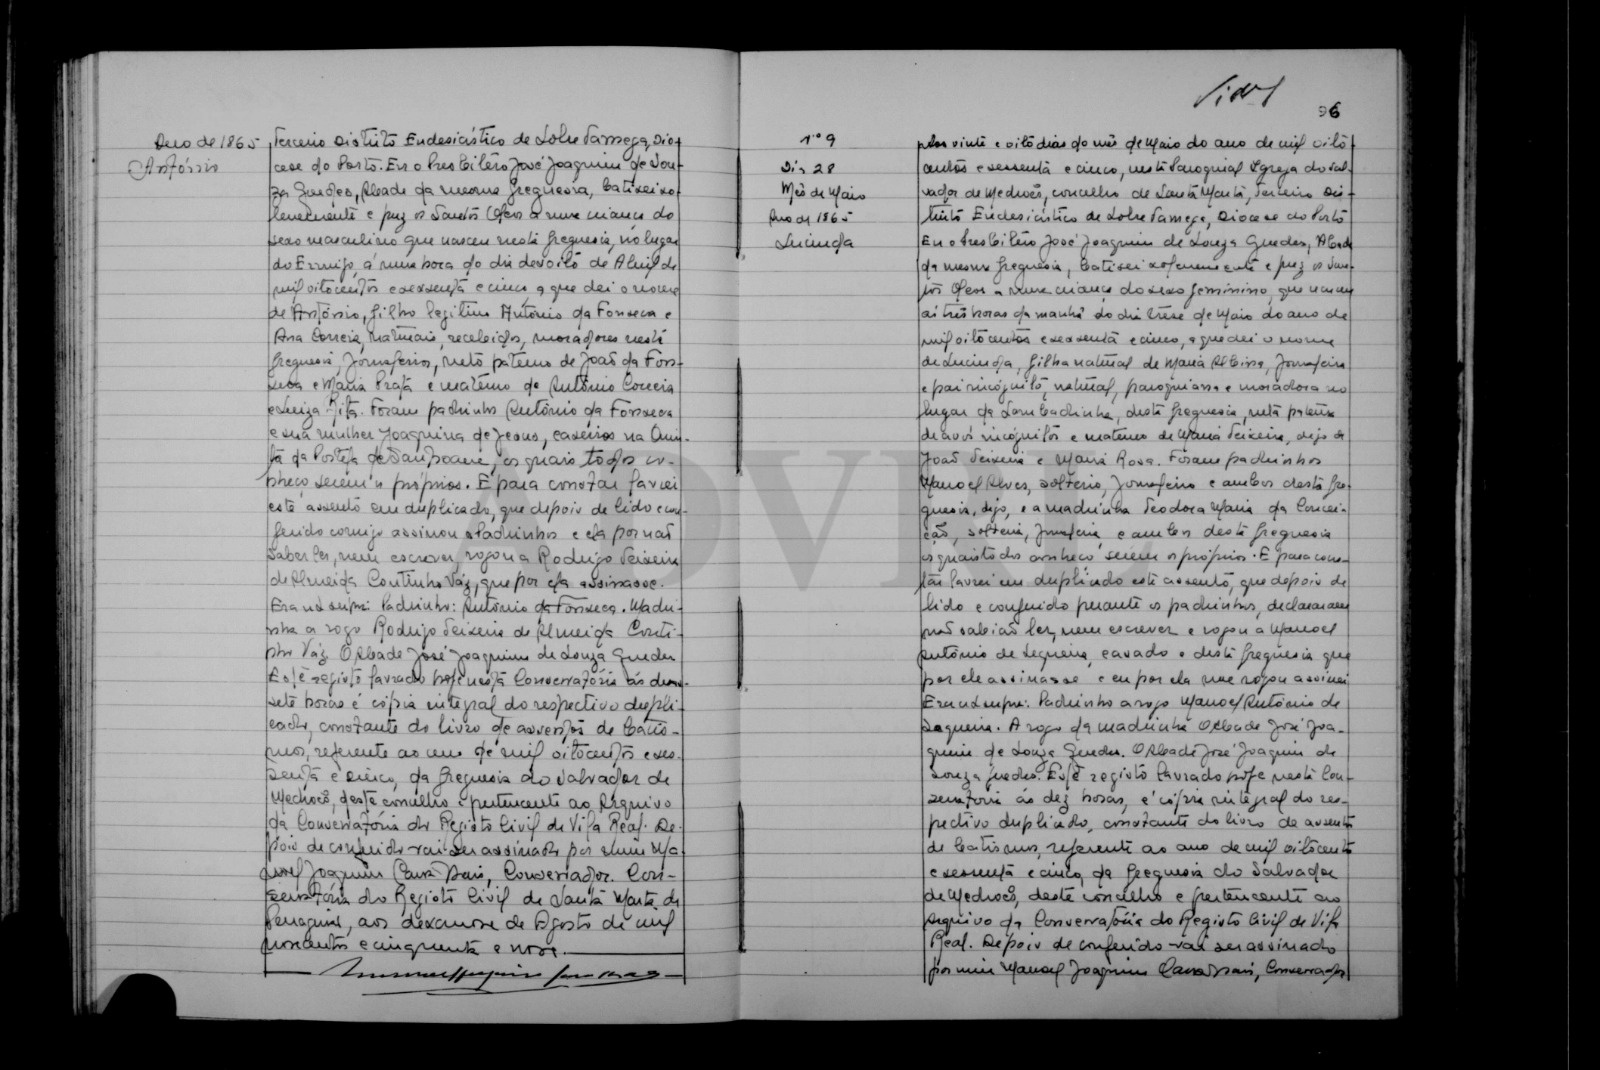 Ano de 1865
António
Terceiro Distrito Eclesiástico de Sobre Tamega, Dio-
cese do Porto. Eu o Presbitero José Joaquim de Sou-
za Guedes, Abade da mesma freguesia, batisei so-
lenemente e puz os Santos Oleos a uma criança do
sexo masculino que nasceu nesta freguesia, no lugar
do Ermijo, á uma hora do dia dezoito de Abril de
mil oitocentos e sessenta e cinco a que dei o nome
de António, filho legitimo António da Fonseca e
Ana Correia, naturais, recebidos, moradores nesta
freguesia, Jornaleiros, neto paterno de João da Fon-
seca e Maria Prata e materno de António Correia
e Luiza Rita. Foram padrinhos António da Fonseca
e sua mulher Joaquina de Jesus, caseiros na Quin-
ta da Portela de os quais todos co-
nheço serem os próprios. E para constar lavrei
este assento em duplicado, que depois de lido e con-
ferido comigo assinou o Padrinho e ela por não
saber ler, nem escrever, rogou a Rodrigo Teixeira
de Almeida Coutinho Váz, que por ela assinasse.
Era ut supra: Padrinho: António da Fonseca. Madri-
nha a rogo Rodrigo Teixeira de Almeida Couti-
nho Váz O Abade José Joaquim de Souza Guedes
Este registo lavrado hoje nesta Conservatória ás dezas-
sete horas é cópia integral do respectivo dupli-
cado, constante do livro de assentos de batis-
mos, referente ao ano de mil oitocentos e ses-
senta e cinco, da freguesia do Salvador de
Medrões, deste concelho e pertencente ao Arquivo
da Conservatória do Registo Civil de Vila Real. De-
pois de conferido vai ser assinado por mim Ma-
nuel Joaquim Conservador. Con-
servatória do Registo Civil de Santa Marta de
Penaguião, aos dezanove de Agosto de mil
novecentos e cinquenta e nove.
96
Nº 9
Dia 28
Mês de Maio
Ano de 1865
Lucinda
Aos vinte e oito dias do mês de Maio do ano de mil oito
centos e sessenta e cinco, nesta Paroquial Igreja do Sal-
vador de Medrões, concelho de Santa Marta, Terceiro Dis-
trito Eclesiástico de Sobre Tamega, Diocese do Porto
Eu o Presbitero José Joaquim de Souza Guedes, Abade
da mesma freguesia, batisei solenemente e puz os San-
tos Oleos a uma criança do sexo feminino, que nasceu
ás três horas da manhã do dia treze de Maio do ano de
mil oitocentos e sessenta e cinco, a que dei o nome
de Lucinda, filha natural de Maria Jornaleira
e pai incógnito, natural, paroquiana e moradora no
lugar da Lombadinha, desta freguesia, neta paterna
de avós incógnitos e materno de Maria Teixeira, digo de
João Teixeira e Maria Rosa. Foram padrinhos
Manoel Alves, solteiro, Jornaleiro e ambos desta fre-
guesia, digo, e a madrinha Teodora Maria da Concei-
ção, solteira, Jornaleira, e ambos desta freguesia
os quais todos conheço serem os próprios. E para cons-
tar lavrei em duplicado este assento, que depois de
lido e conferido perante os padrinhos, declararam
não sabião ler, nem escrever e rogou a Manoel
António de Sequeira, casado e desta freguesia que
por ele assinasse e eu por ela me rogou assinei
Era ut supra: Padrinho a rogo Manoel António de
Sequeira. A rogo da madrinha O Abade José Joa-
quim de Souza Guedes. O Abade José Joaquim de
Souza Guedes. Este registo lavrado hoje nesta Con-
servatória ás dez horas, é cópia integral do res-
pectivo duplicado, constante do livro de assentos
de batismos, referente ao ano de mil oitocentos
e sessenta e cinco, da freguesia do Salvador
de Medrões, deste concelho e pertencente ao
Arquivo da Conservatória do Registo Civil de Vila
Real. Depois de conferido vai ser assinado
por mim Manoel Joaquim Conservador